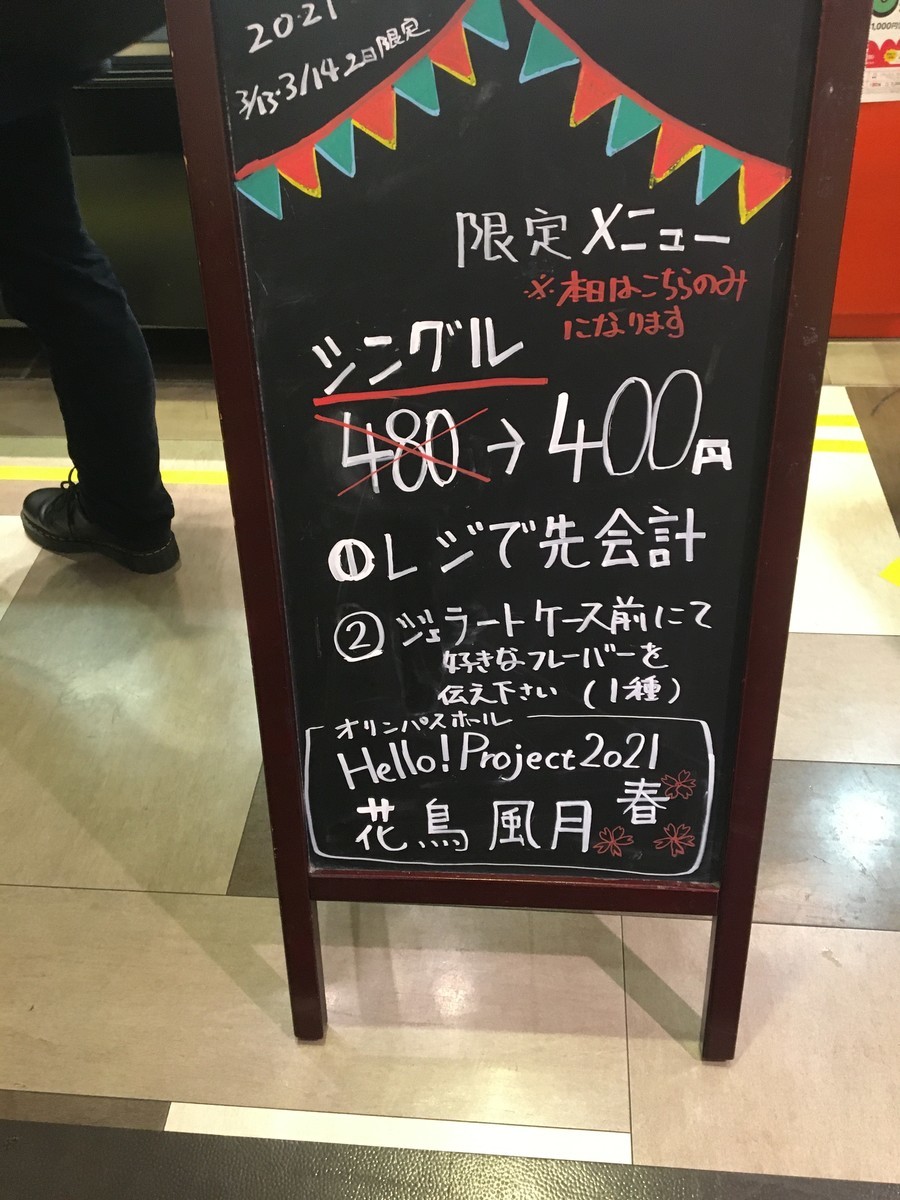 2021
3/13・3/14 2日限定
限定メニュー
※本日はこちらのみ
になります
シングル
480→400円
①レジで先会計
②ジェラートケース前にて
好きなフレーバーを
伝え下さい (1種)
オリンパスホール
Hello! Project 2021
春
花鳥風月